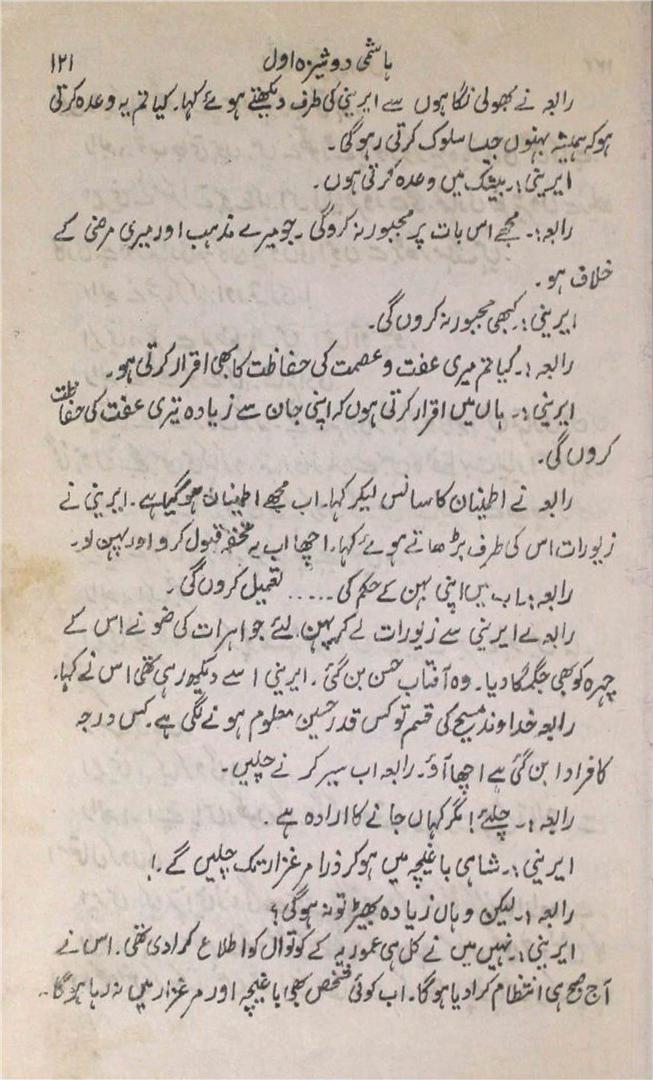 ہاشمی دوشیزہ اول ۱۲۱
رابعہ نے بھولی نگاہوں سے ایرینی کی طرف دیکھتے ہوئے کہا۔ کیا تم یہ وعدہ کرتی
ہو کہ ہمیشہ بہنوں جیسا سلوک کرتی رہو گی۔
ایرینی:۔ بیشک میں وعدہ کرتی ہوں۔
رابعہ:۔ مجھے اس بات پر مجبور نہ کرو گی۔ جو میرے مذہب اور میری مرضی کے
خلاف ہو۔
ایرینی:۔ کبھی مجبور نہ کروں گی۔
رابعہ:۔ کیا تم میری عفت و عصمت کی حفاظت کا بھی اقرار کرتی ہو۔
ایرینی:۔ ہاں میں اقرار کرتی ہوں کہ اپنی جان سے زیادہ تیری عفت کی حفاظت
کروں گی۔
رابعہ نے اطینان کا سانس لیکر کہا۔ اب مجھے اطینان ہو گیا ہے۔ ایرینی نے
زیورات اس کی طرف بڑھاتے ہوئے کہا۔ اچھا اب یہ تحفہ قبول کرو اور پہن لو۔
رابعہ:۔ اب میں اپنی بہن کے حکم کی ..... تعمیل کروں گی۔
رابعہ نے ایرینی سے زیورات لے کر پہن لئے جواہرات کی ضو نے اس کے
چہرہ کو بھی جگمگا دیا۔ وہ آفتاب حسن بن گئی۔ ایرینی اسے دیکھ رہی تھی اس نے کہا۔
رابعہ خداوند مسیح کی قسم تو کس قدر حسین معلوم ہونے لگی ہے۔ کس درجہ
کافر ادا بن گئی ہے اچھا آؤ۔ رابعہ اب سیر کرنے چلیں۔
رابعہ:۔ چلئے! مگر کہاں جانے کا ارادہ ہے۔
ایرینی:۔ شاہی باغیچہ میں ہو کر ذرا مرغزار تک چلیں گے۔!
رابعہ:۔ لیکن وہاں زیادہ بھیڑ تو نہ ہو گی؟
ایرینی:۔ نہیں میں نے کل ہی عموریہ کے کوتوال کو اطلاع کرا دی تھی۔ اس نے
آج صبح ہی انتظام کرا دیا ہو گا۔ اب کوئی شخص بھی باغیچہ اور مرغزار میں نہ رہا ہو گا۔